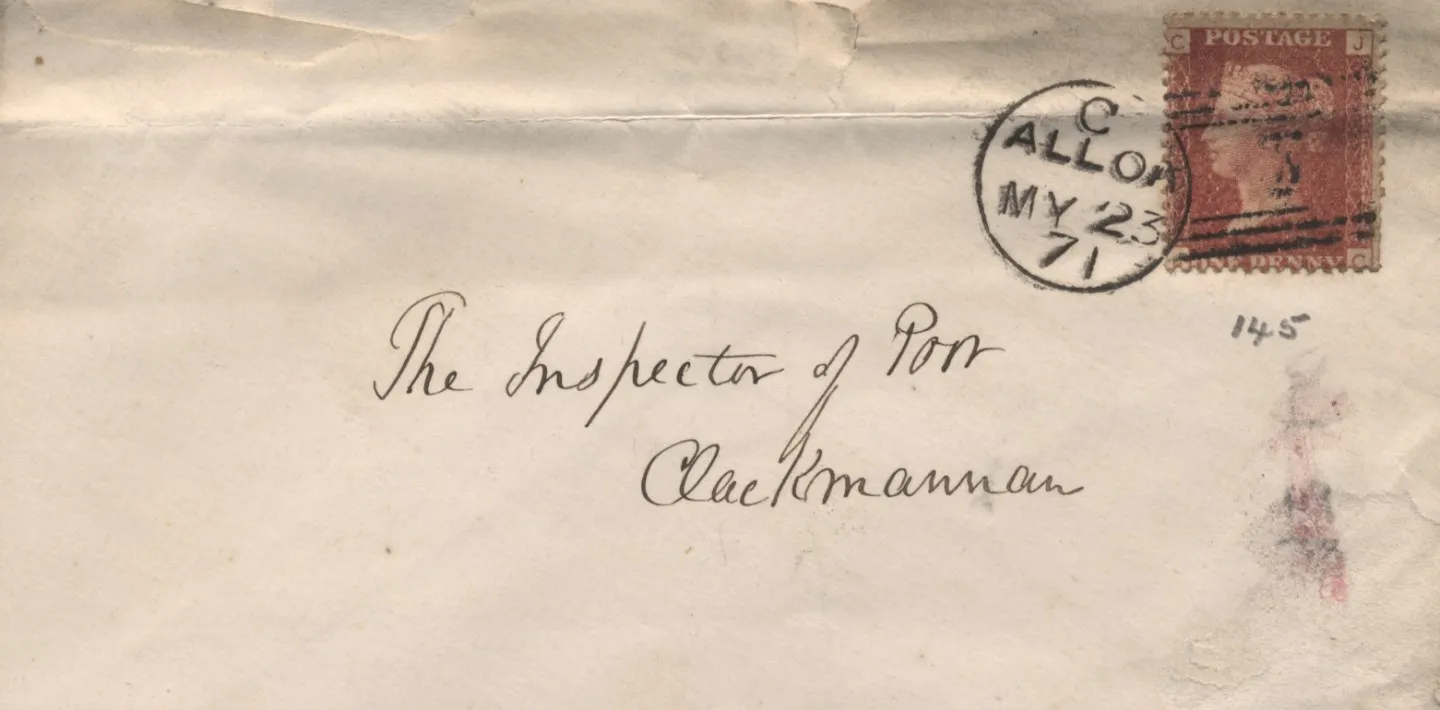 C POSTAGE J
C
ALLOA
MY 23
71
ONE PENNY C
145
The Inspector of Poor
Clackmannan